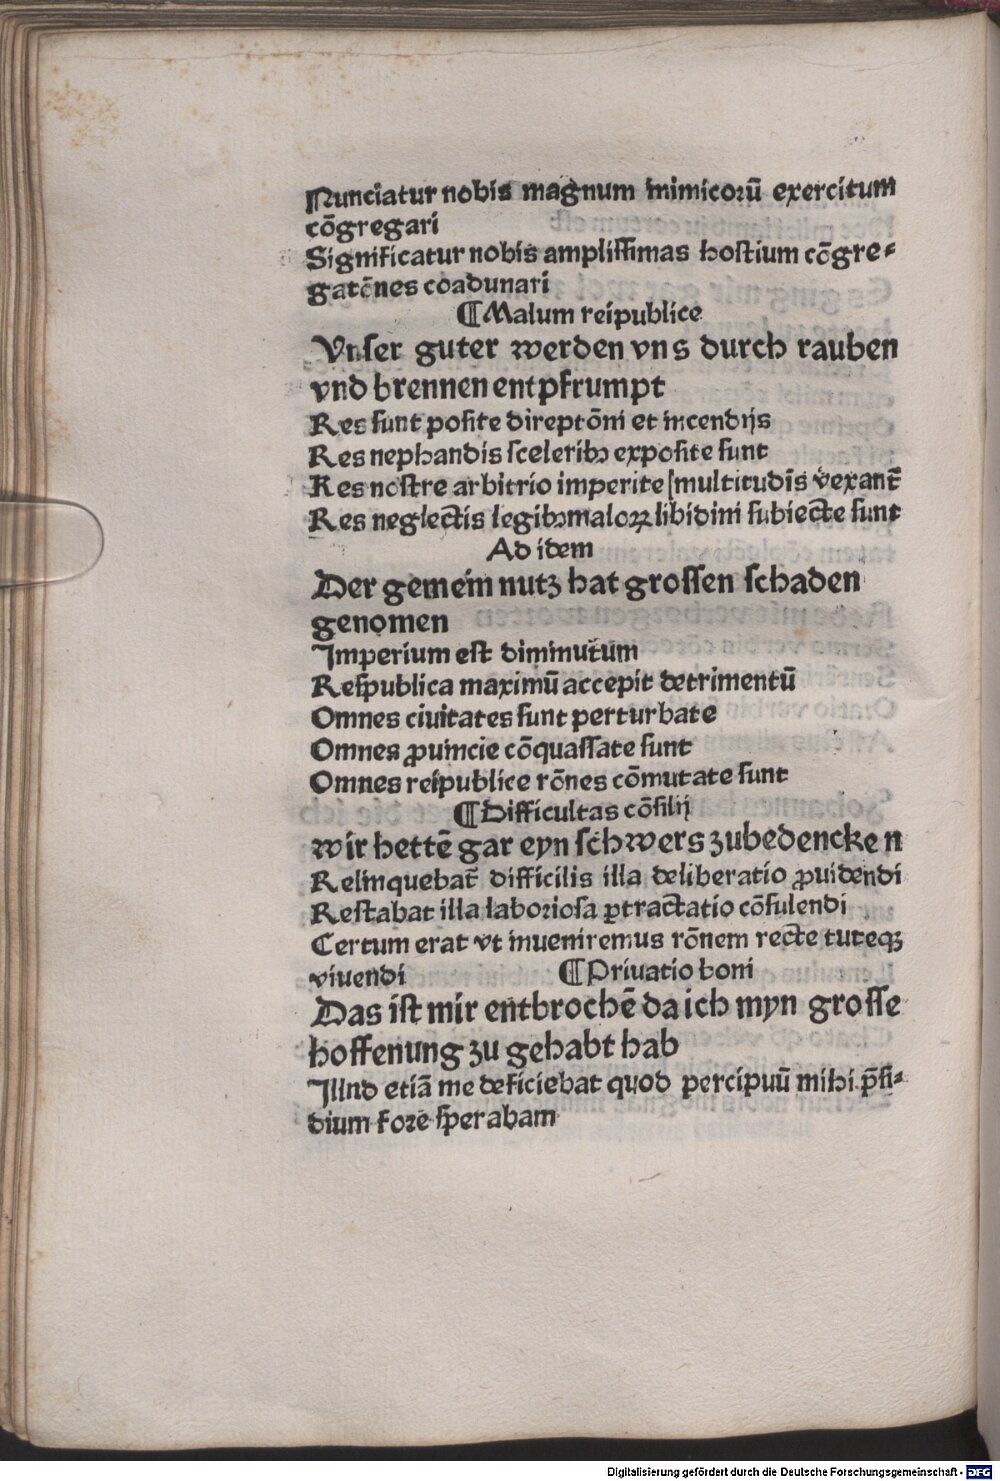 Nunciatur nobis magnum inimicoꝝū exercitum
cōgregari
Significatur nobis ampliſſimas hoſtium cōgre⸗
gatōnes coadunari
¶Malum reipublice
Vnſer guter werden vns durch rauben
vnd brennen entpfrumpt
Res ſunt poſite direptōni et incendijs
Res nephandis ſceleribꝫ expoſite ſunt
Res noſtre arbitrio imperite multitudīs vexant̄
Res neglectis legibꝫ maloꝝ libidini ſubiecte ſunt
Ad idem
Der gemein nutz hat groſſen ſchaden
genomen
Imperium eſt diminutum
Reſpublica maximū accepit detrimentū
Omnes ciuitates ſunt perturbate
Omnes ꝓuincie cōquaſſate ſunt
Omnes reipublice rōnes cōmutate ſunt
¶Difficultas cōſilij
wir hettē gar eyn ſchwers zubedencken
Relinquebat̄ difficilis illa deliberatio ꝓuidendi
Reſtabat illa laborioſa ꝑtractatio cōſulendi
Certum erat vt inueniremus rōnem recte tuteqꝫ
viuendi ¶Priuatio boni
Das iſt mir entbrochē da ich myn groſſe
hoffenung zu gehabt hab
Illnd etiā me deficiebat quod percipuū mihi p̄ſi⸗
dium fore ſperabam
Digitalisierung gefördert durch die Deutsche Forschungsgemeinschaft - DFG